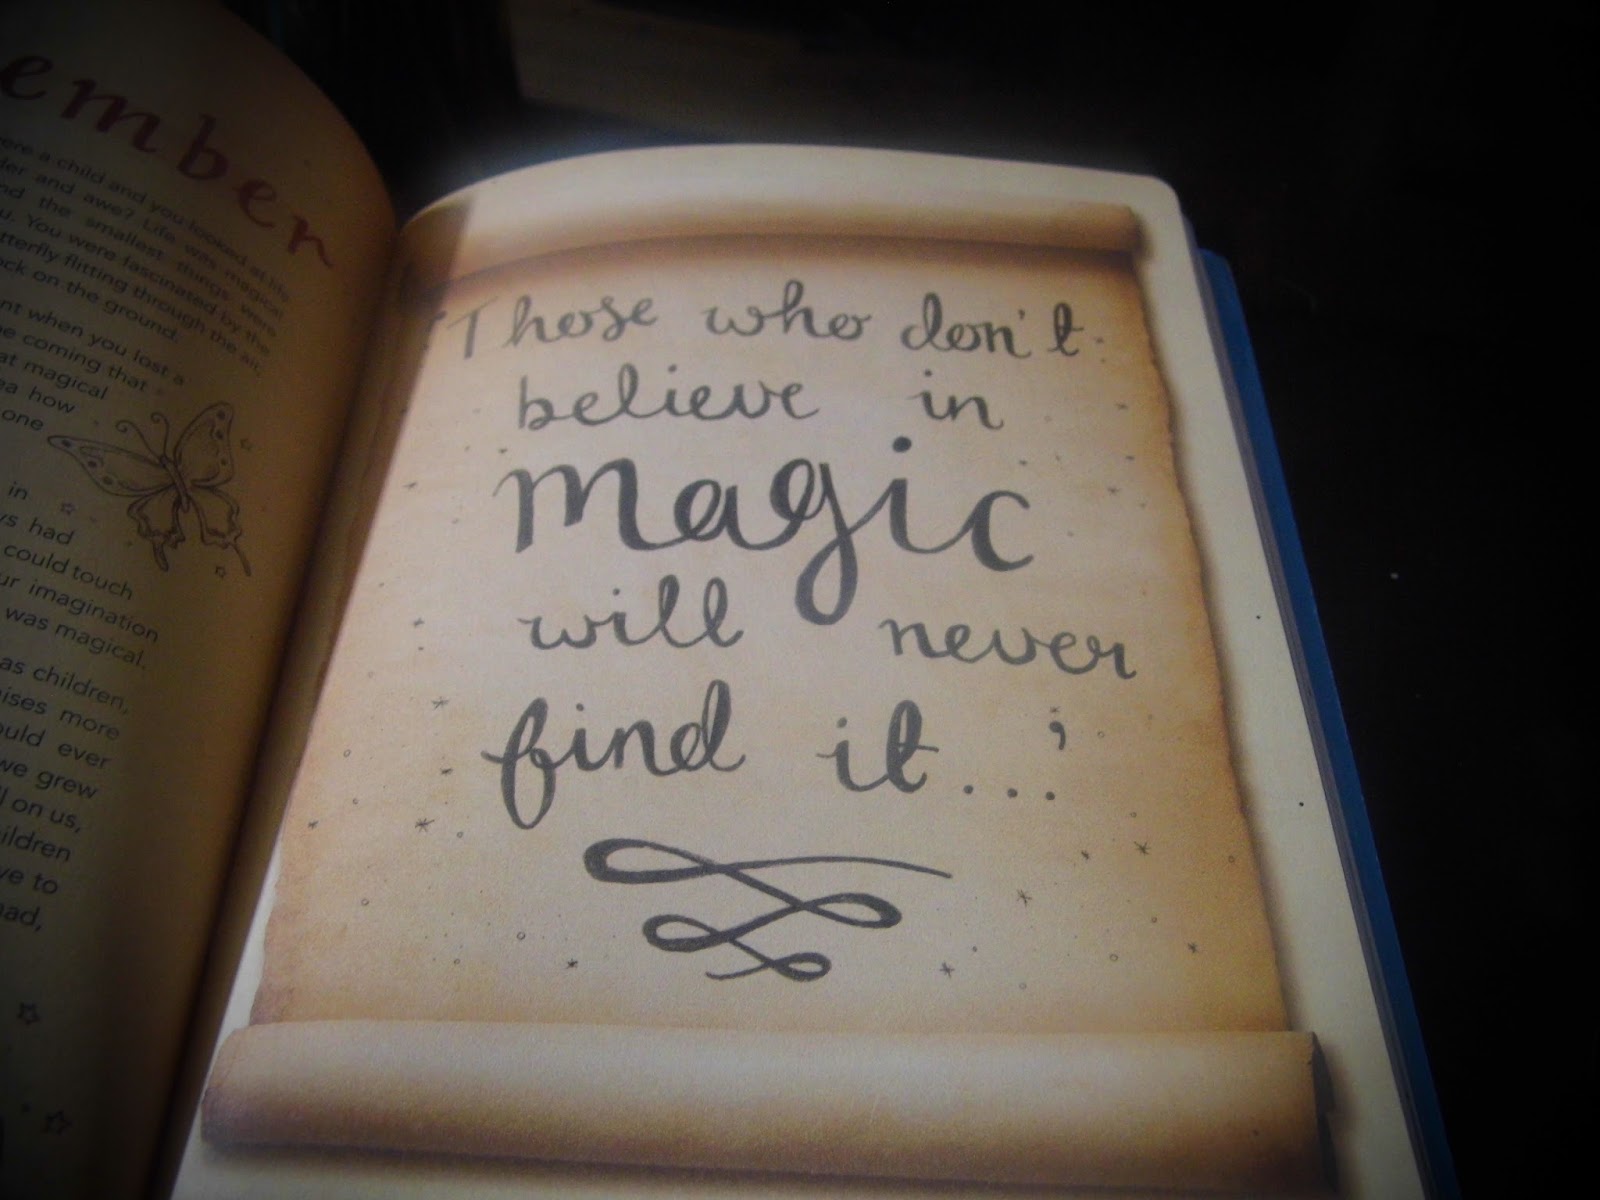 ember
ere a child and you looked at life
der and awe? Life was magical
nd the smallest things were
u. You were fascinated by the
tterfly flitting through the air,
ock on the ground.
nt when you lost a
e coming that
at magical
ea how
one
in
ys had
could touch
ur imagination
was magical.
as children,
ises more
ould ever
we grew
l on us,
ildren
ve to
had,
'Those who don't
believe in
magic
will never
find it...'